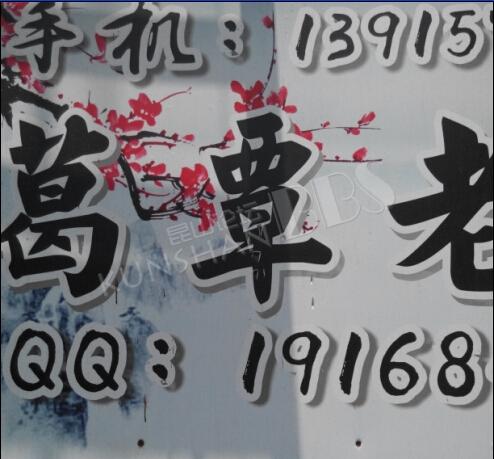 手机：13915
葛覃老
昆山论坛 BBS
KUNSHAN
QQ：19168